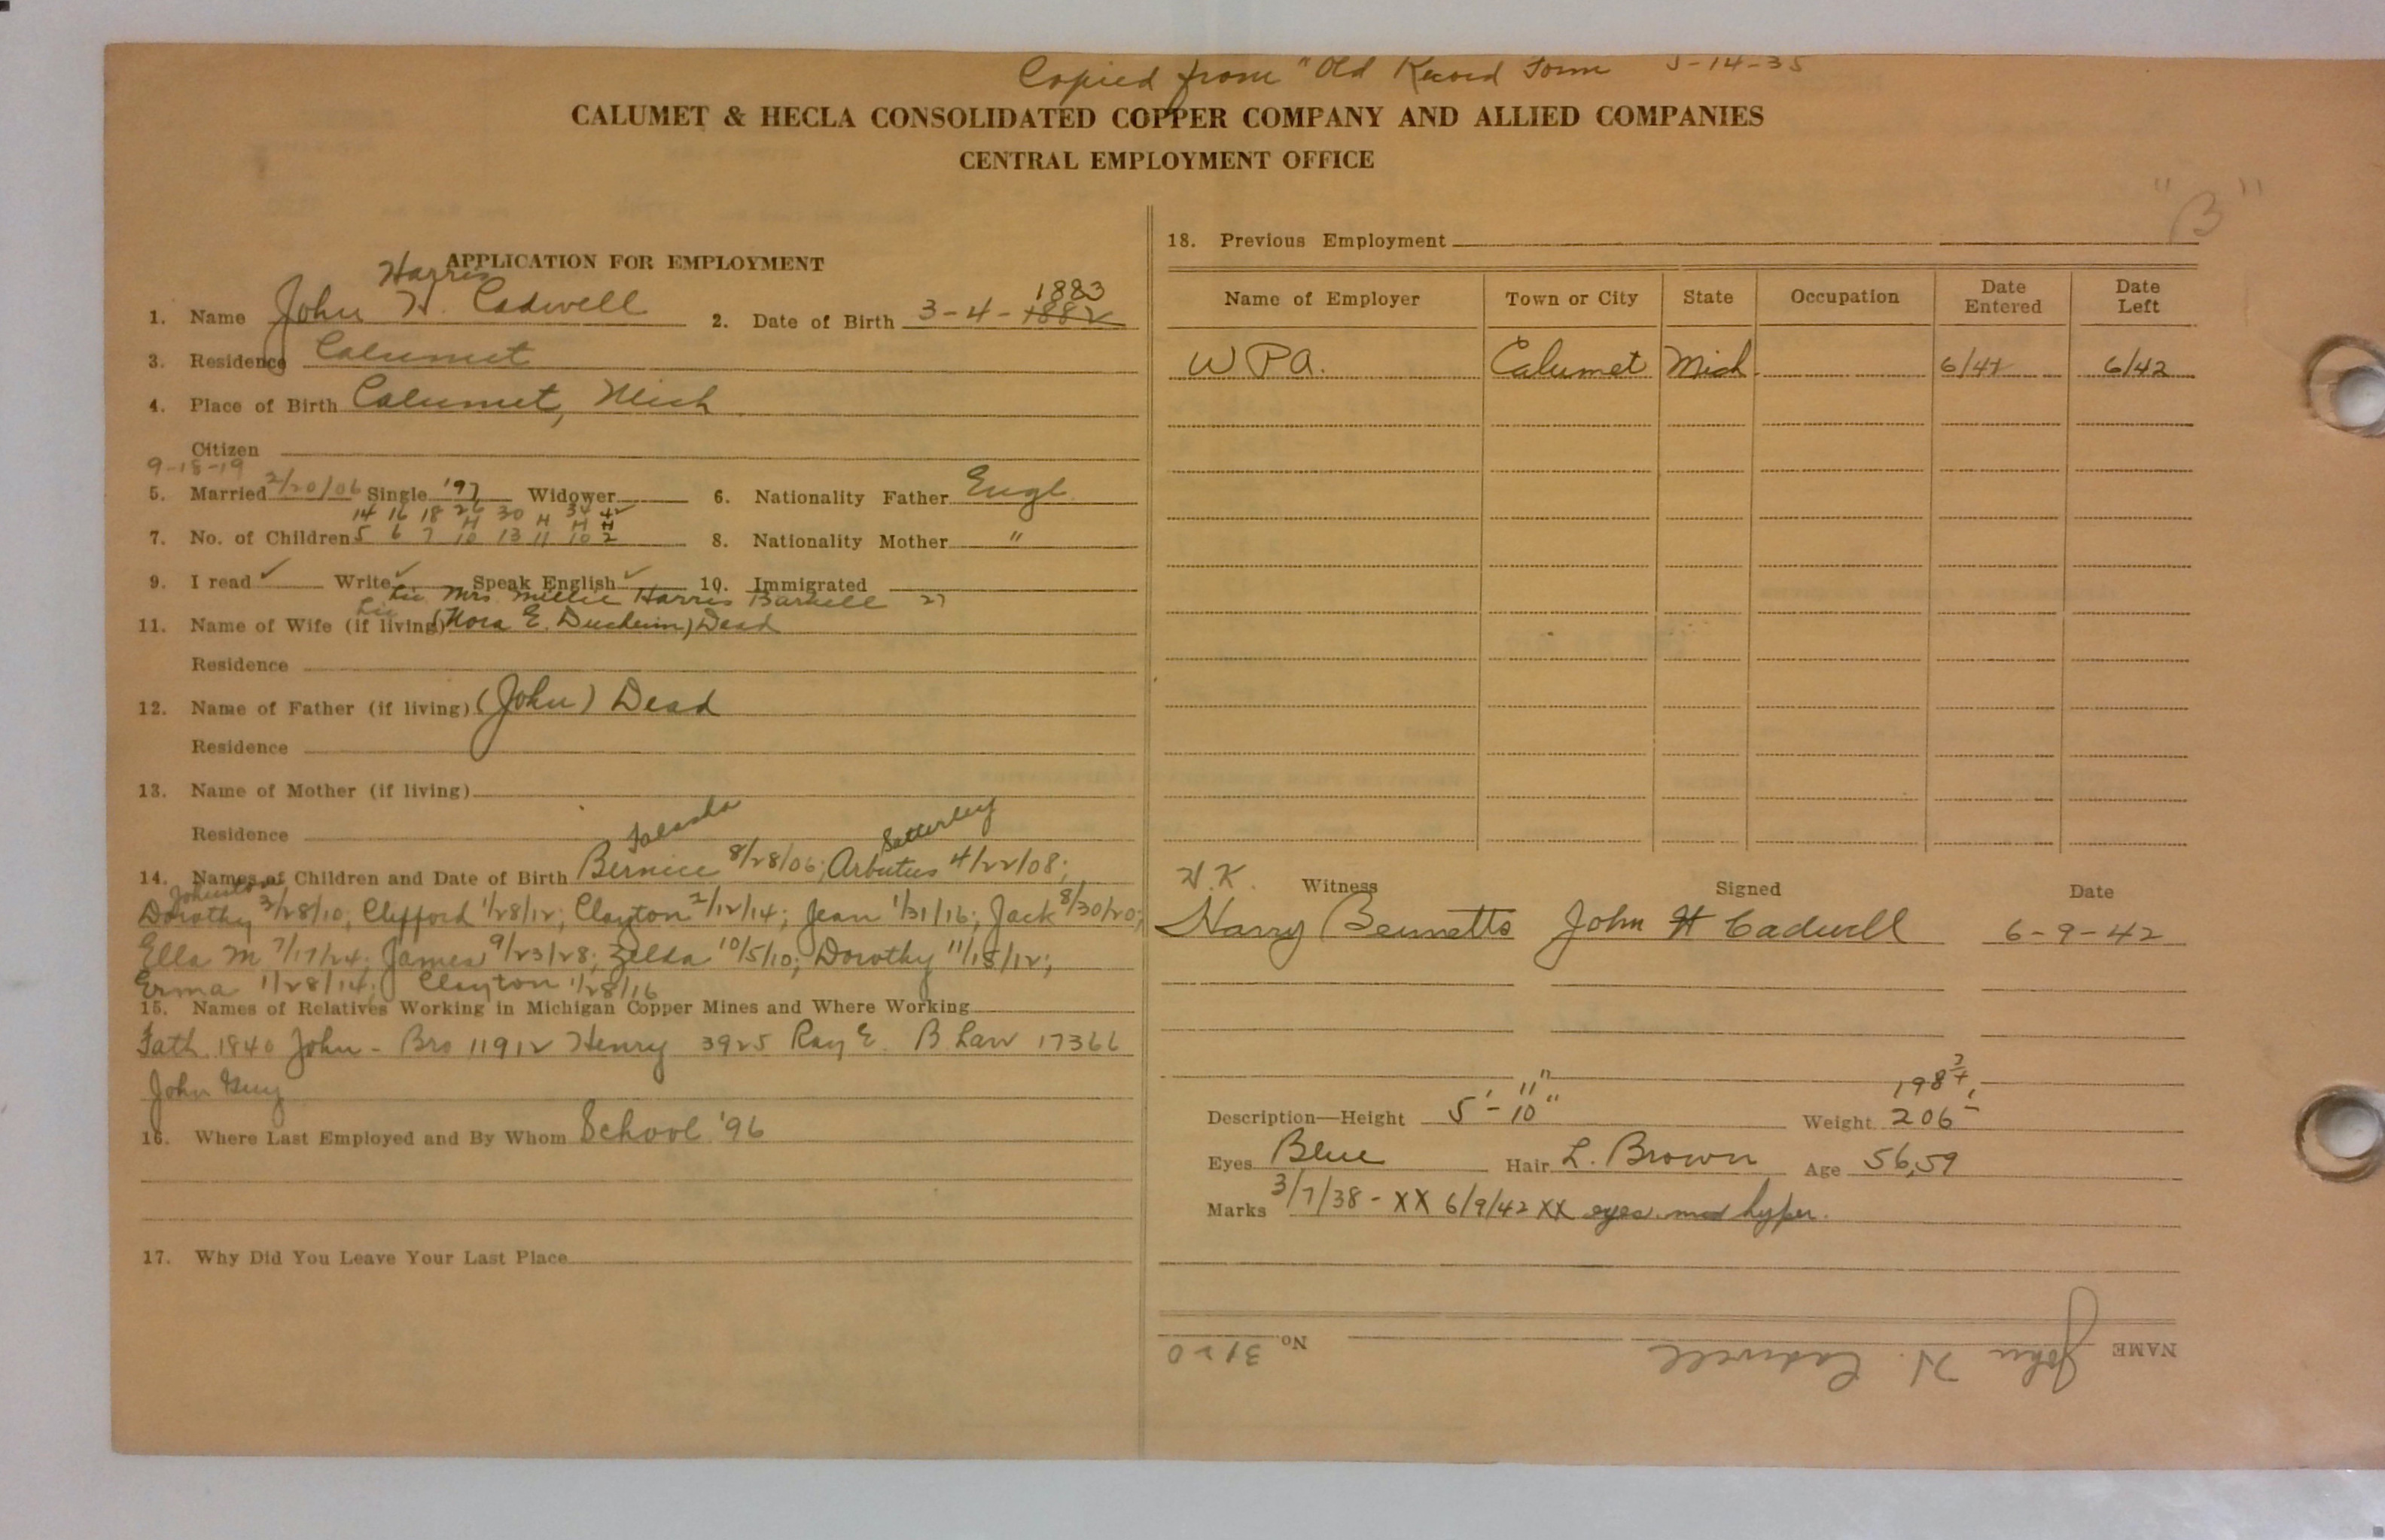 Copied from "Old Record Form 5-14-35
CALUMET & HECLA CONSOLIDATED COPPER COMPANY AND ALLIED COMPANIES
CENTRAL EMPLOYMENT OFFICE
"B"
APPLICATION FOR EMPLOYMENT
Harris
1. Name John H. Cadwell 2. Date of Birth 3-4-1882 1883
3. Residence Calumet
4. Place of Birth Calumet, Mich
Citizen
9-18-19
5. Married 2/20/06 Single '97 Widower 6. Nationality Father Engl.
14 16 18 26 30 H 34 42
H H H
7. No. of Children 5 6 7 10 13 11 10 2 8. Nationality Mother "
9. I read ✓ Write ✓ Speak English ✓ 10. Immigrated
Liv Mrs Millie Harris Barkell 27
11. Name of Wife (if living) (Nora E. Ducheim) Dead
Residence
12. Name of Father (if living) (John) Dead
Residence
13. Name of Mother (if living)
Residence
Satterley
14. Names of Children and Date of Birth Bernice 8/28/06; Arbutus 4/22/08;
Johnston
Dorothy 3/28/10; Clifford 1/28/12; Clayton 2/12/14; Jean 1/31/16; Jack 8/30/20;
Ella M 7/17/24; James 9/23/28; Zelda 10/5/10; Dorothy 11/15/12;
Erma 1/28/14; Clayton 1/28/16
15. Names of Relatives Working in Michigan Copper Mines and Where Working
Fath. 1840 John - Bro 11912 Henry 3925 Ray E. B. Law 17366
John Guy
16. Where Last Employed and By Whom School '96
17. Why Did You Leave Your Last Place
18. Previous Employment
Name of Employer Town or City State Occupation Date Entered Date Left
W P A. Calumet Mich. 6/41 6/42
H.K. Witness Signed Date
Harry Bennetts John H Cadwell 6-9-42
11" 198 3/4
Description—Height 5'-10" Weight 206-
Eyes Blue Hair L. Brown Age 56, 59
Marks 3/7/38 - XX 6/9/42 XX eyes mod hyper.
NAME John H. Cadwell No 3120